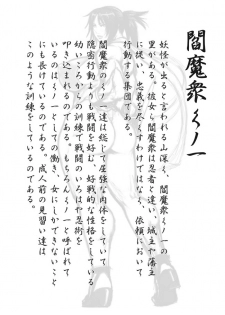 閻魔衆くノ一
妖怪が出ると言われる山深く、閻魔衆くノ一の
里がある。彼女ら閻魔衆は忍者と違い、城主や藩主
に従い、忠義を尽くすわけではなく、依頼において
行動する集団である。
閻魔衆のくノ一達は総じて屈強な肉体をしていて
隠密行動よりも戦闘を好む、好戦的な性格をしている
幼いころからの訓練で戦闘のいろはや忍術を
叩き込まれるのである。もちろんくノ一と呼ばれて
いるのはくノ一としての働き、女にしかできないこと
にも長けているのである。成人前の見習い達は
そのような訓練をしているのである。